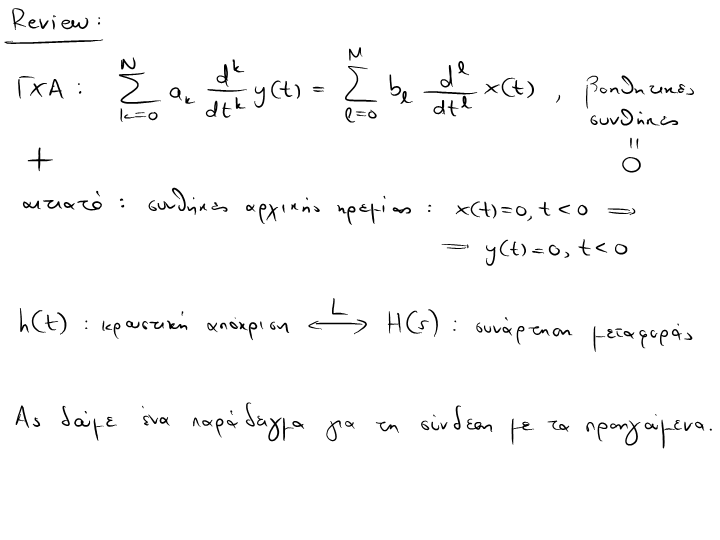 Review:
ΓΧΑ : \sum_{k=0}^{N} a_k \frac{d^k}{dt^k} y(t) = \sum_{l=0}^{M} b_l \frac{d^l}{dt^l} x(t) , βοηθητικές συνθήκες = 0
+
αιτιατό : συνθήκες αρχικής ηρεμίας : x(t)=0, t<0 ⇒
⇒ y(t)=0, t<0
h(t) : κρουστική απόκριση \overset{L}{⟷} H(s) : συνάρτηση μεταφοράς
Ας δούμε ένα παράδειγμα για τη σύνδεση με τα προηγούμενα.